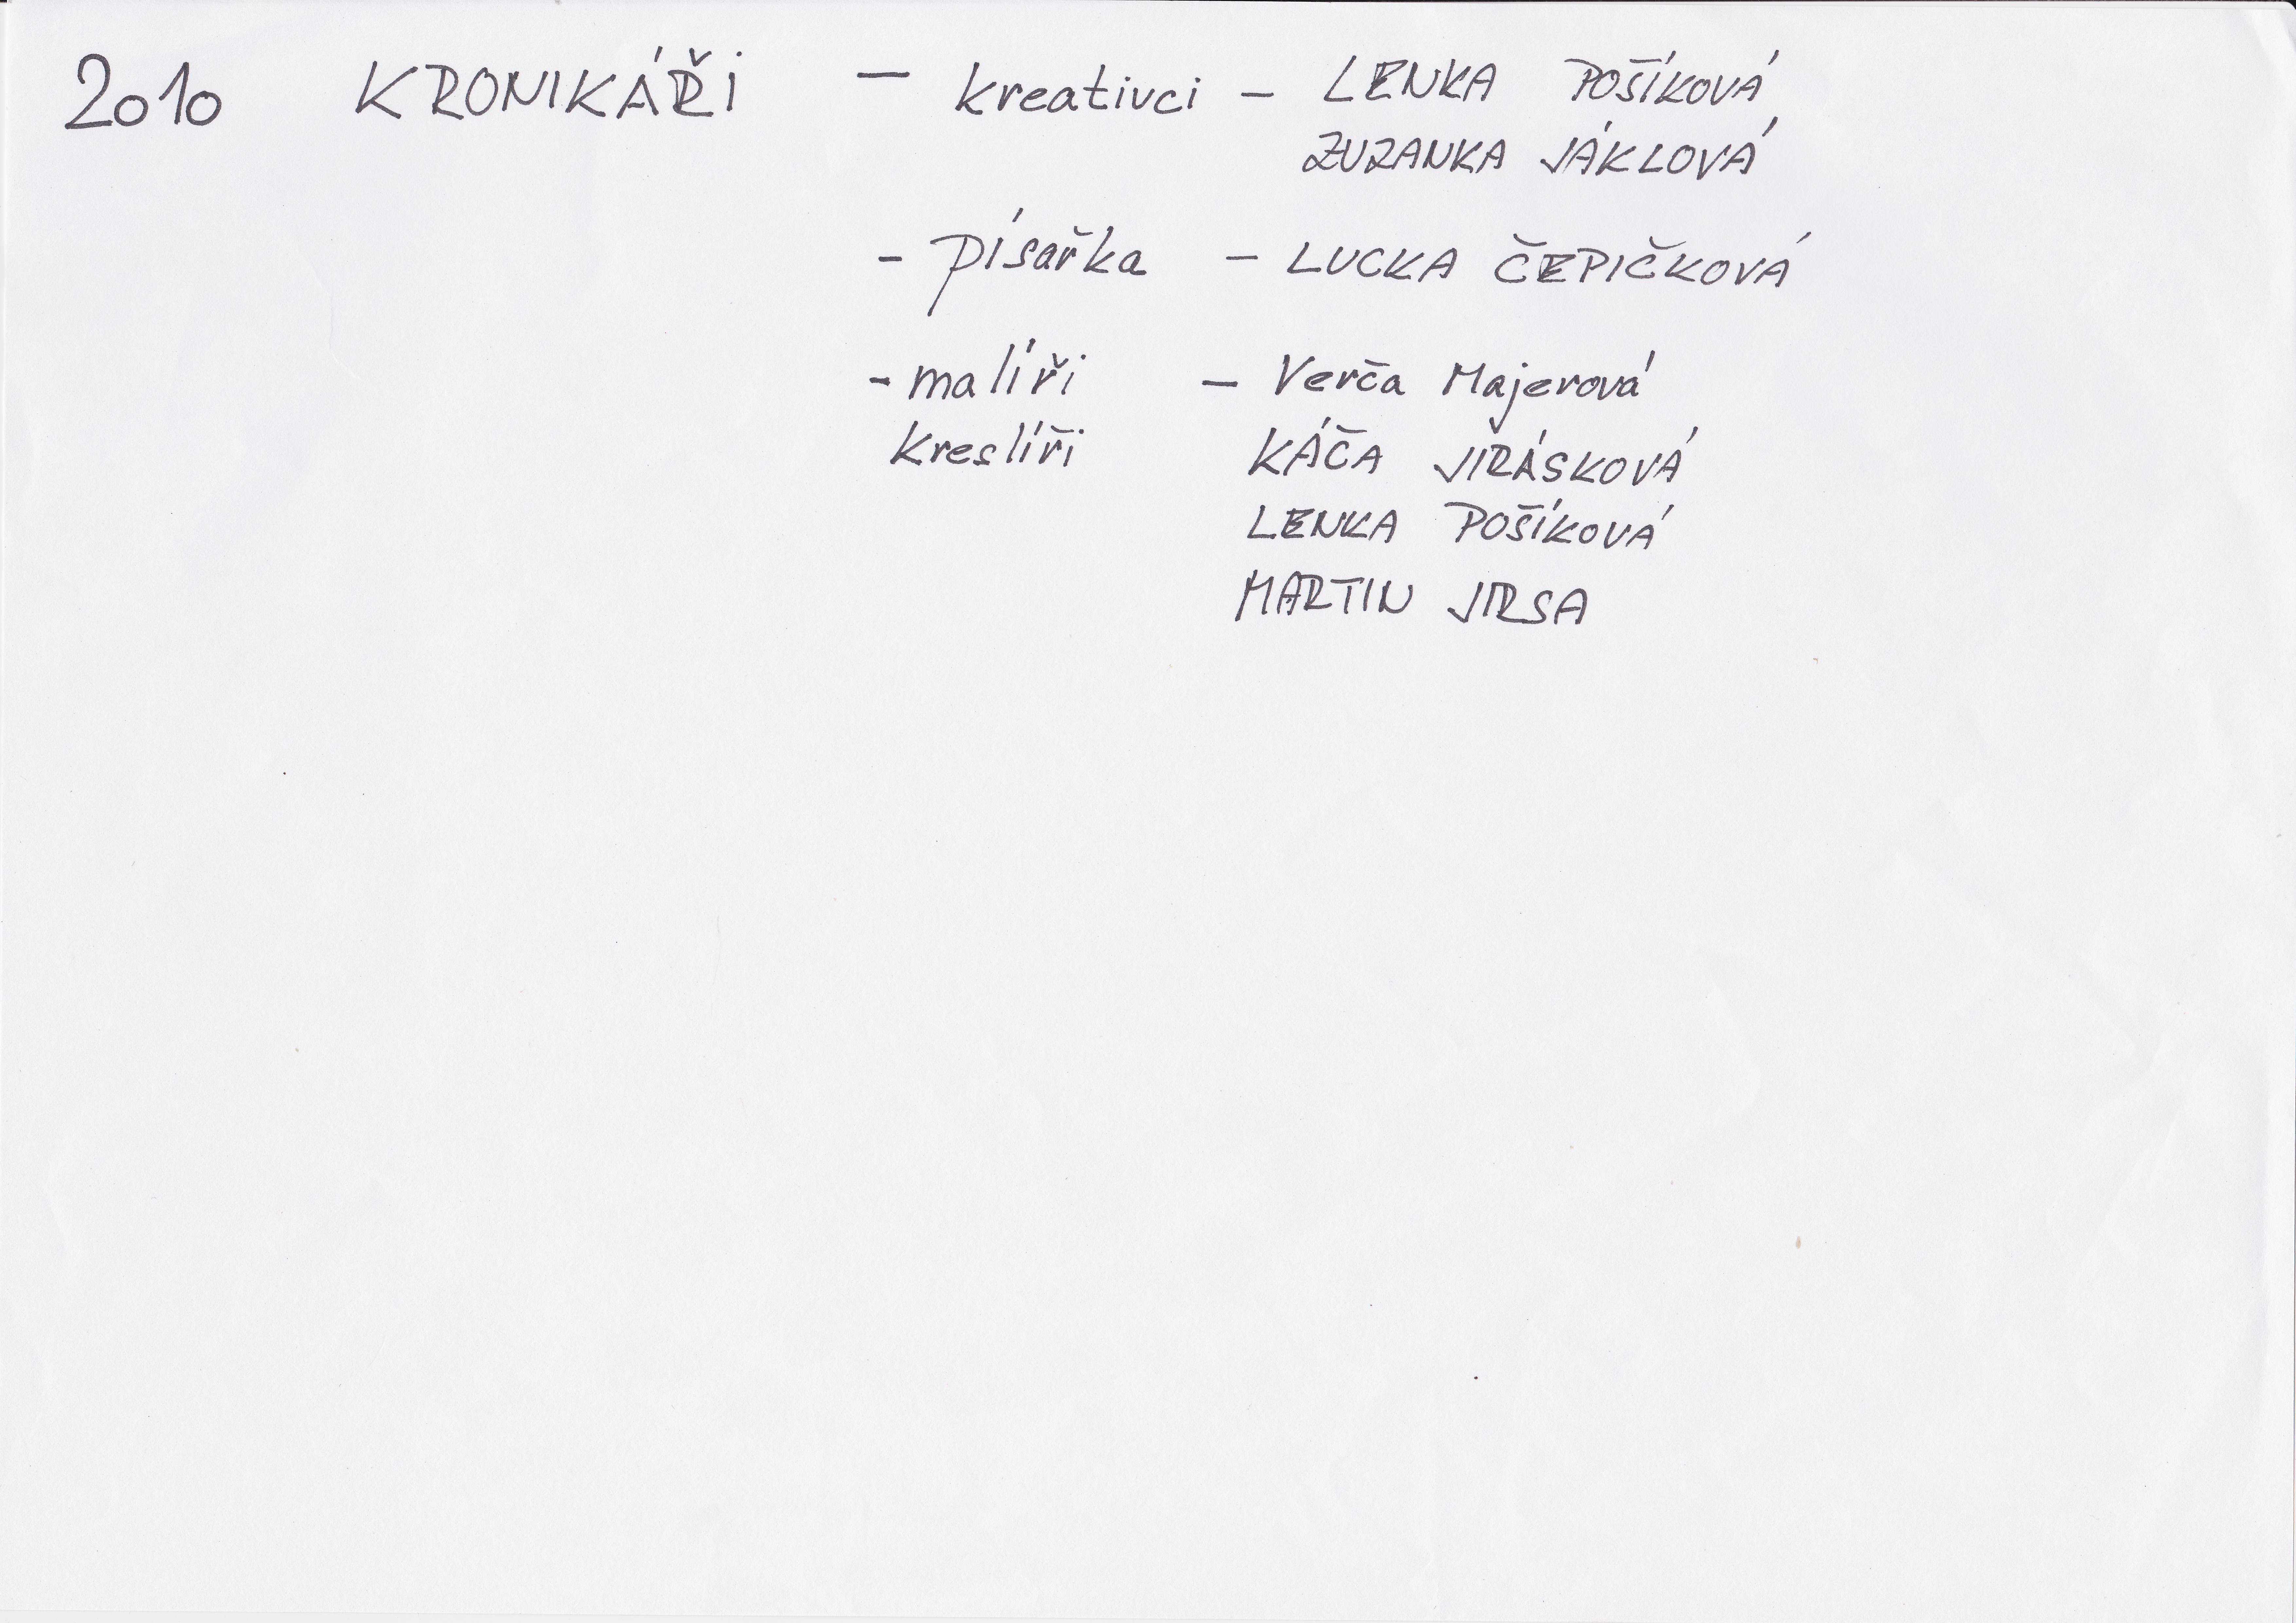 2010 KRONIKÁŘI — kreativci – LENKA POŠÍKOVÁ
ZUZANKA JÁKLOVÁ
- písařka – LUCKA ČEPIČKOVÁ
- malíři – Verča Majerová
kreslíři KÁČA JIRÁSKOVÁ
LENKA POŠÍKOVÁ
MARTIN JIRSA